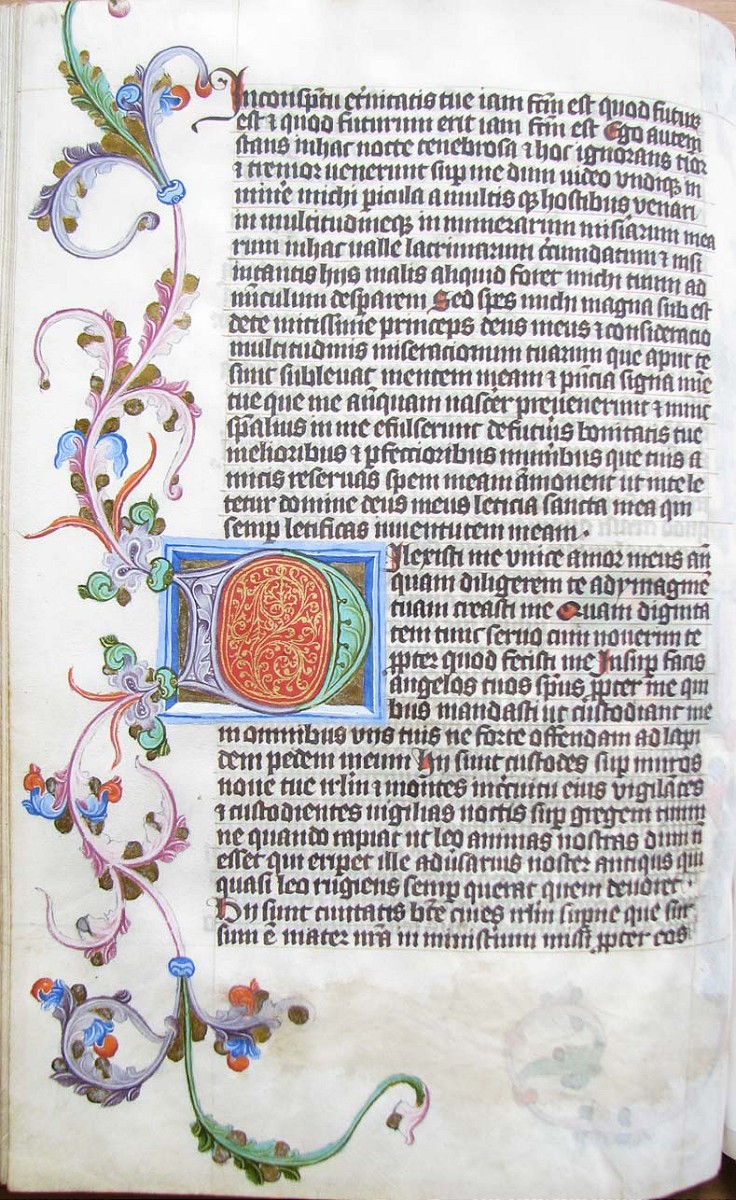 In conspectu et̄nitatis tue iam fcm̄ est quod futuru
est ⁊ quod futurum erit iam fcm̄ est Ego autem
stans in hac nocte tenebrosa ⁊ hoc ignorans tior
⁊ tremor uenerunt sup me dum uideo vndiq in
mine michi picula a multis qs hostibus venari
in multitudineq̄ innumerarum misiarum mea
rum in hac ualle lacrimarum c̄cumdatum ⁊ nisi
in tantis hiis malis aliquid foret michi tuum ad
iunculum despārem Sed spes michi magna sub est
de te mitissime princeps deus meus ⁊ consideracio
multitudinis miseracionum tuarum que aput te
sunt subleuat mentem meam ⁊ pn̄cia signa mie
tue que me anq̄uam nascer preuenerunt ⁊ nunc
sp̄alius in me efulserunt de futuris bonitatis tue
melioribus ⁊ pfectioribus muneribus que tuis a
micis reseruas spem meam āmonent ut in te le
tetur domine deus meus leticia sancta mea qui
semp letificas iuuentutem meam·
Dilexisti me vnice amor meus an̄
quam diligerem te ad ymaginē
tuam creasti me Quam dignita
tem tunc seruo cum nouerim te
ꝓpter quod fecisti me Insup facis
angelos tuos spūs ꝓpter me qui
bus mandasti ut custodiant me
in omnibus viis tuis ne forte offendam ad lapi
dem pedem meum Hii sunt custodes sup muros
noue tue irl̄m ⁊ montes in c̄cuitu eius vigilātes
⁊ custodientes vigilias noctis sup gregem tuum
ne quando rapiat ut leo animas nostras dum n̄
esset qui eripet ille adūsarius noster antiqus qui
quasi leo rugiens semp querat quem deuoret·
Hii sunt ciuitatis btē ciues irl̄m supne que sur
sum ē mater nr̄a in ministium missi ꝓpter eos